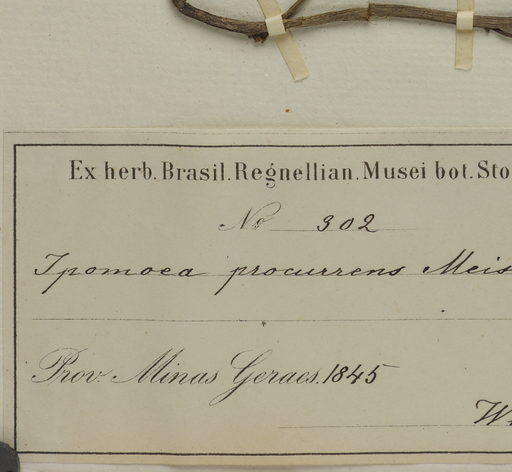 Ex herb. Brasil. Regnellian. Musei bot. Sto
No 302
Ipomoea procurrens Meis
Prov. Minas Geraes. 1845
W